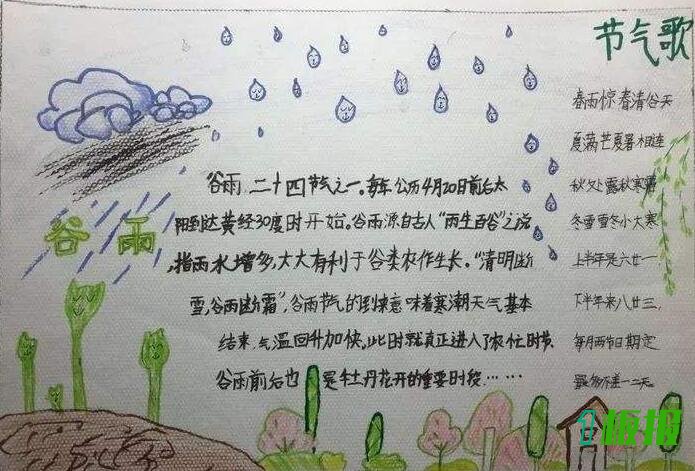 谷雨
谷雨,二十四节气之一。每年公历4月20日前后太
阳到达黄经30度时开始。谷雨源自古人"雨生百谷"之说
,指雨水增多,大大有利于谷类农作生长。"清明断
雪,谷雨断霜",谷雨节气的到来意味着寒潮天气基本
结束,气温回升加快,此时就真正进入了农忙时节.
谷雨前后也是牡丹花开的重要时段……
节气歌
春雨惊春清谷天
夏满芒夏暑相连
秋处露秋寒霜
冬雪雪冬小大寒
上半年是六廿一
下半年来八廿三,
每月两节日期定
最多不差一二天。
板报